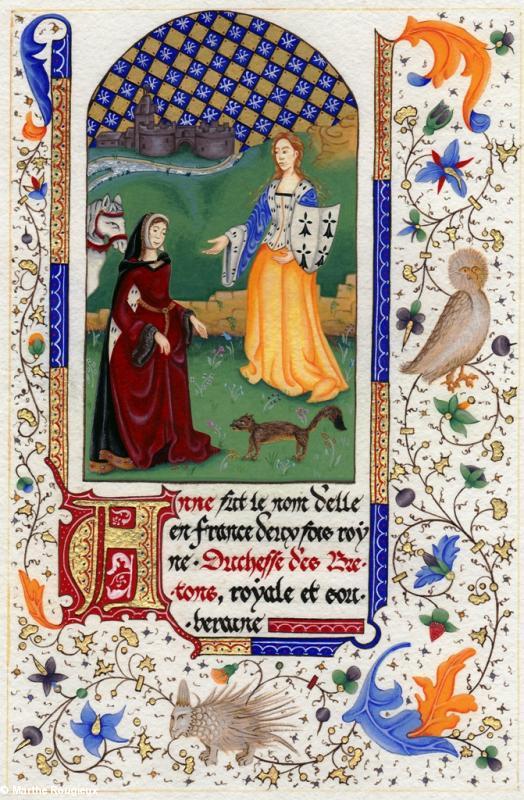 Anne fut le nom d'elle
en france deux fois roy
ne · Duchesse des Bre-
tons, royale et sou-
·veraine
© Marthe Rougieux